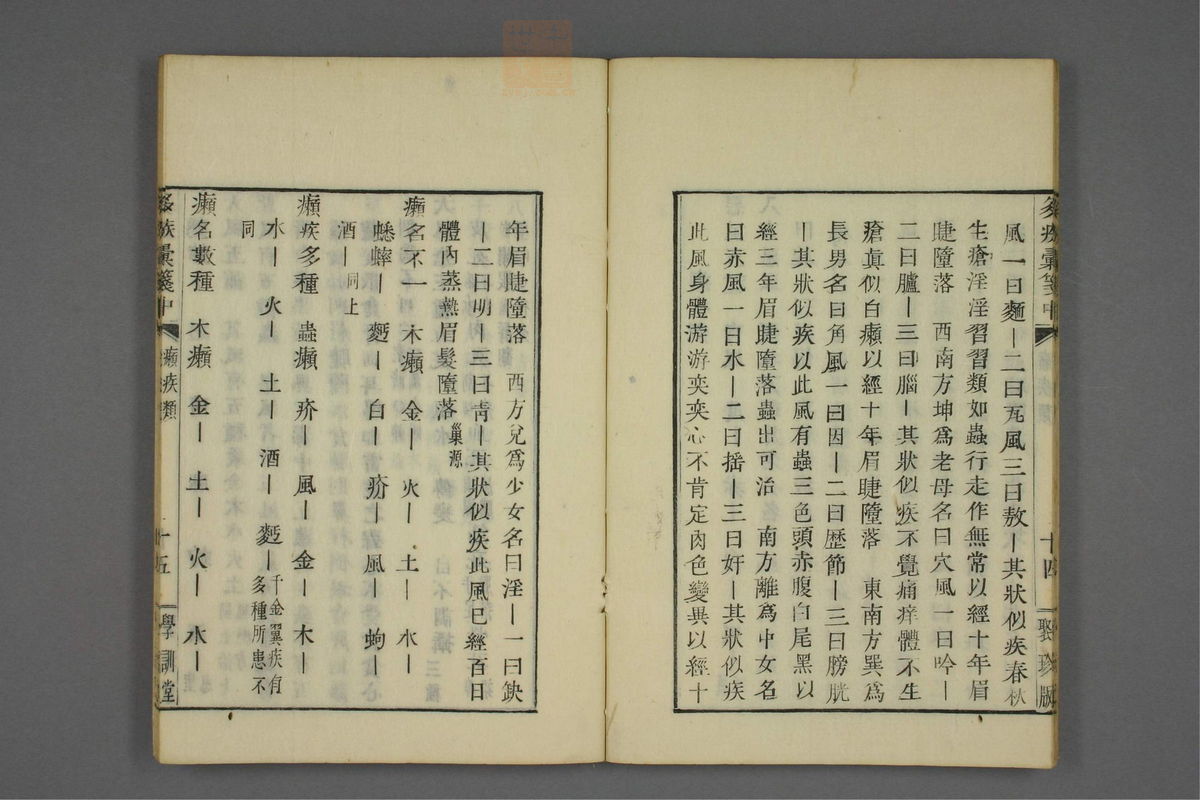 風一曰麵ー二曰瓦風三曰敖ー其狀似疾春秋
生瘡淫淫習習類如蟲行走作無常以經十年眉
睫墮落　西南方坤爲老母名曰穴風一曰吟ー
二曰臚ー三曰腦ー其狀似疾不覺痛痒體不生
瘡眞似白癩以經十年眉睫墮落　東南方巽爲
長男名曰角風一曰因ー二曰歷節ー三曰膀胱
ー其狀似疾以此風有蟲三色頭赤腹白尾黑以
經三年眉睫墮落蟲出可治　南方離爲中女名
曰赤風一曰水ー二曰搖ー三曰奸ー其狀似疾
此風身體游游奕奕心不肯定肉色變異以經十
疾彙箋中
十四
聚珍版
年眉睫墮落　西方兌爲少女名曰淫ー一曰缺
ー二曰明ー三曰青ー其狀似疾此風已經百日
體內蒸熱眉髮墮落巢源
癩名不一　木癩　金ー　火ー　土ー　水ー
蟋蟀ー　麪ー　白ー　疥ー　風ー　蚼ー
酒ー同上
癩疾多種　蟲癩　疥ー　風ー　金ー　木ー
水ー　火ー　土ー　酒ー　麪ー千金翼疾有多種所患不
同
癩名數種　木癩　金ー　土ー　火ー　水ー
疾彙箋中
癩疾類
十五
學訓堂